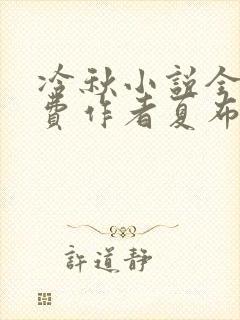 冷秋小説全
費作者夏布
許道靜